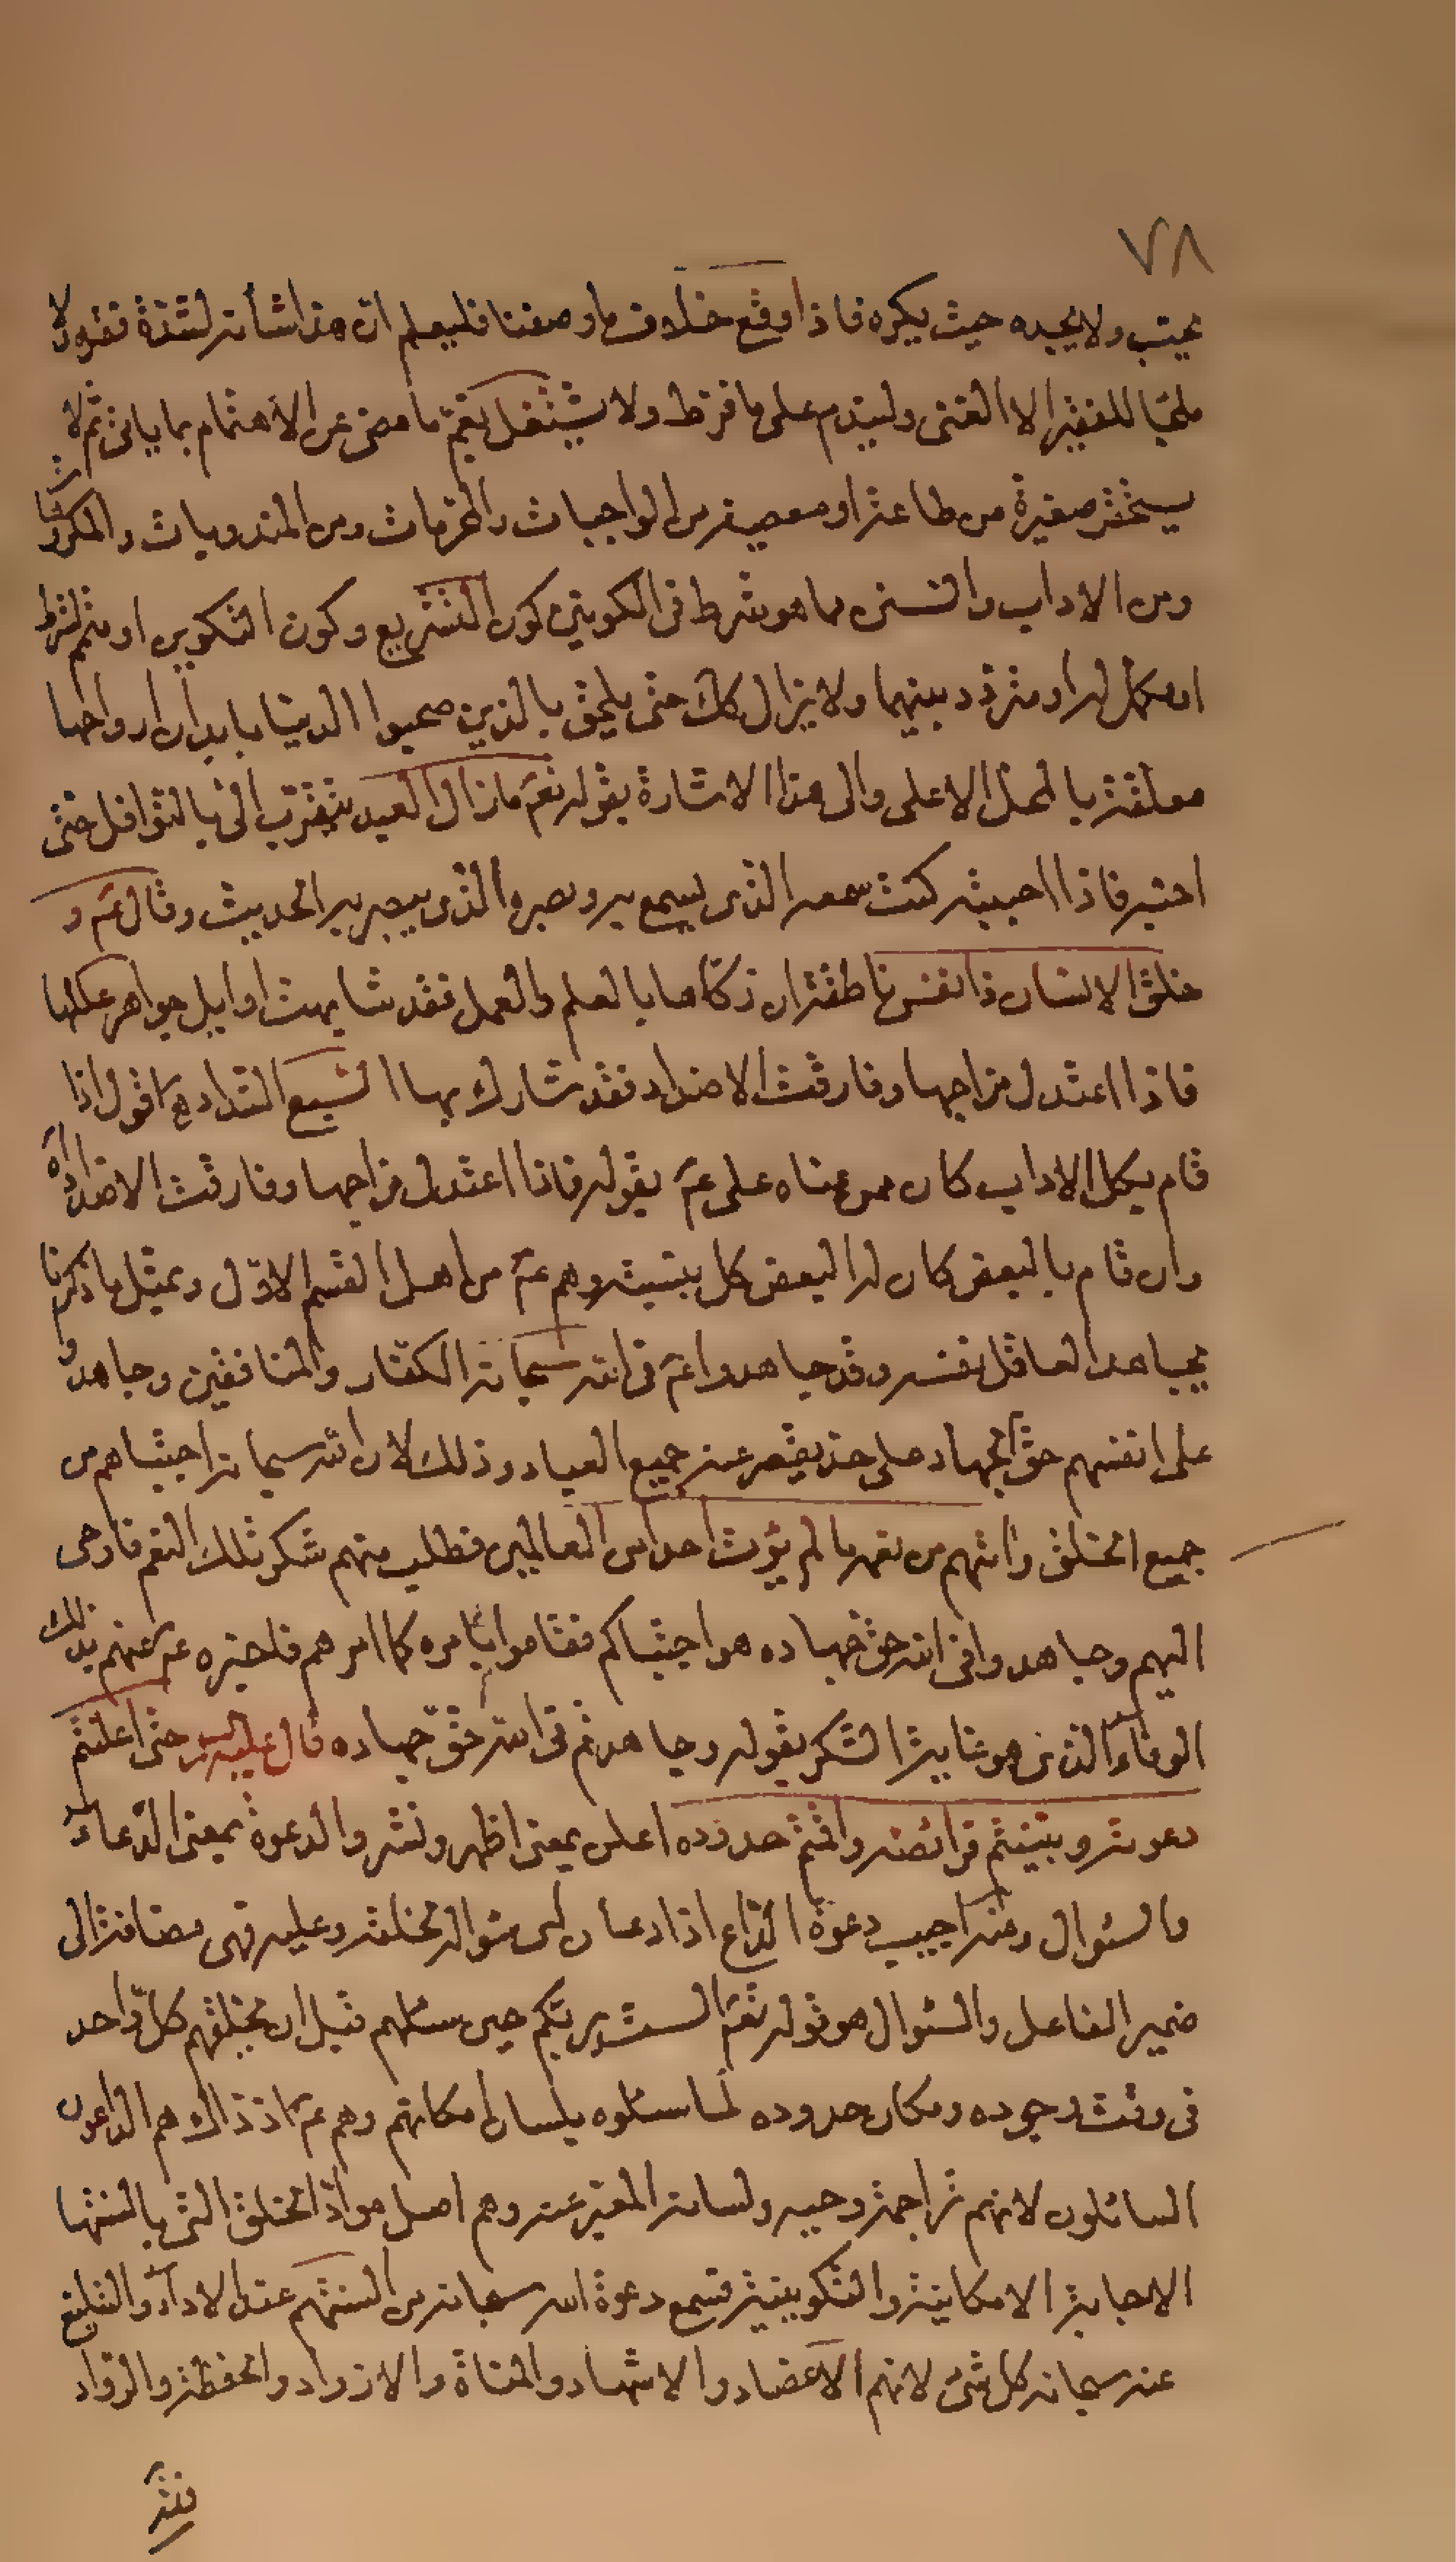 ٧٨
يحب ولا يجده حيث يكره فاذا وقع خلاف ما وصفنا فليعلم ان هذا شأنه لشدة فقره لا
ملجأ للفقير الا الغنى وليندم على ما فرط ولا يشتغل بغم ما مضى عن الاهتمام بما ياتى ثم لا
يستحقر صغيرة من طاعة او معصية من الواجبات والمحرمات ومن المندوبات والمكروهات
ومن الاداب والسنن مما هو شرط فى الكونين كون التشريع وكون التكوين او متمم لشرط
او مكمل له او متردد بينهما ولا يزال كك حتى يلحق بالذين صحبوا الدنيا بابدان ارواحها
معلقة بالمحل الاعلى والى هذا الاشارة بقوله تعم ما زال العبد يتقرب الىّ بالنوافل حتى
احبه فاذا احببته كنت سمعه الذى يسمع به وبصره الذى يبصر به الحديث وقال عم و
خلق الانسان ذا نفس ناطقة ان زكّاها بالعلم والعمل فقد شابهت اوايل جواهر عللها
فاذا اعتدل مزاجها وفارقت الاضداد فقد شارك بها السبع الشداد هـ اقول اذا
قام بكل الاداب كان ممن عناه على عم بقوله فاذا اعتدل مزاجها وفارقت الاضداد اه
وان قام بالبعض كان له البعض كل بنسبته وهم عم من اهل القسم الاول وبمثل ما ذكرنا
يجاهد العاقل نفسه وقد جاهدوا عم فى الله سبحانه الكفار والمنافقين وجاهدوا
على انفسهم حق الجهاد على حد يقصر عنه جميع العباد وذلك لان الله سبحانه اجتباهم من
جميع الخلق واتيهم من نعمه ما لم يؤت احدا من العالمين فطلب منهم شكر تلك النعم فاوحى
اليهم وجاهدوا فى الله حق جهاده هو اجتباكم فقاموا بامره كما امرهم فاخبره عم عنهم بذلك
الوفاء الذى هو غاية الشكر بقوله وجاهدتم فى الله حق جهاده قال عليه السلم حتى اعلنتم
دعوته وبينتم فرائضه واقمتم حدوده اعلن بمعنى اظهر ونشر والدعوة بمعنى الدعاء
والسئوال ومنه اجيب دعوة الداع اذا دعان لى سئواله لخلقه وعليه فهى مضافة الى
ضمير الفاعل والسئوال هو قوله تعم الست بربكم حين سئلهم قبل ان يخلقهم كل واحد
فى وقت وجوده ومكان حدوده لما سئلوه بلسان امكانهم وهم عم اذ ذاك هم الداعون
السائلون لانهم تراجمة وحيه ولسانه المعبر عنه وهم اصل مواد الخلق التى بالسنتها
الاجابة الامكانية والتكوينية فسمع دعوة الله سبحانه من السنتهم عند الاداء والتبليغ
عنه سبحانه كل شئ لانهم الاعضاد والاشهاد والمناة والازواد والحفظة والرواد